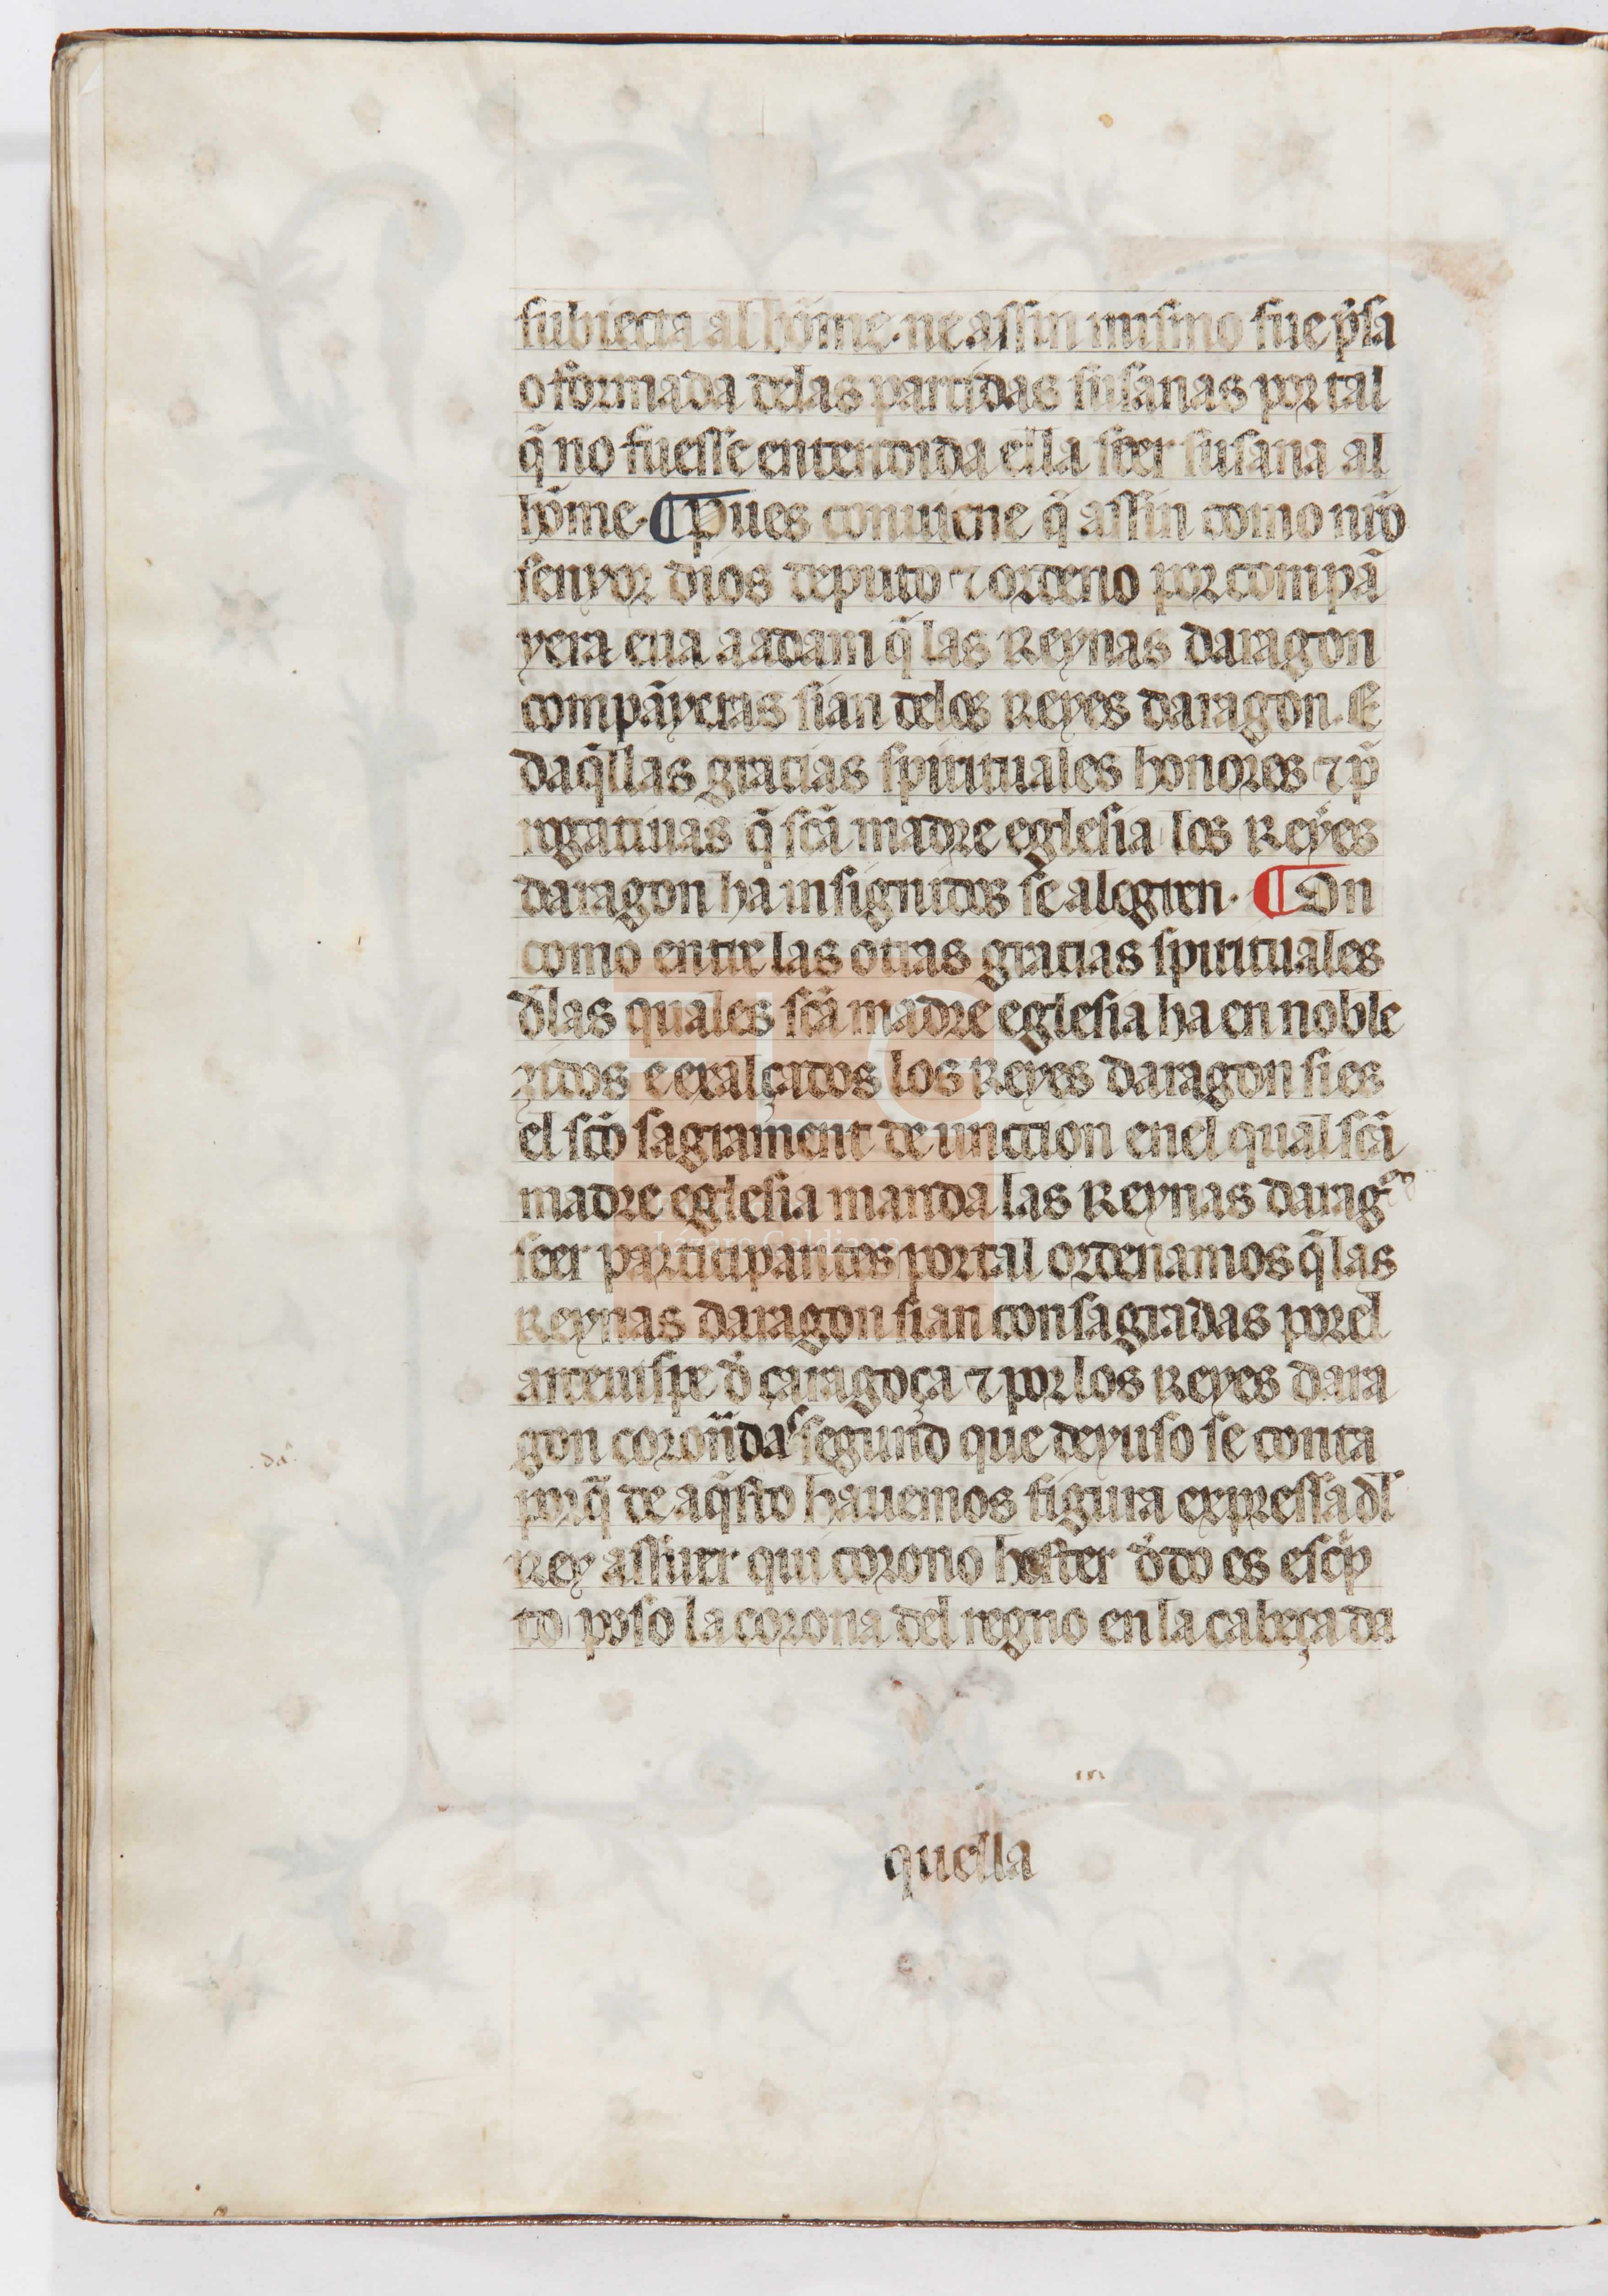 subiecta al hõme. ne assin mismo fue p̃sa
o formada delas partidas susanas por tal
q̃ no fuesse entendida ella seer susana al
hõme. ¶ Pues conuiene q̃ assin como nr̃o
senyor dios deputo ⁊ ordeno por compã
yera eua a adam q̃ las Reynas daragon
compãyeras sian delos Reyes daragon. E
daq̃llas gracias spirituales honores ⁊ p̃
rogatiuas q̃ sc̃a madre eglesia los Reyes
daragon ha insignidos se alegren. ¶ On
como entre las otras gracias spirituales
d̃las quales sc̃a madre eglesia ha en noble
zidos e exalçados los Reyes daragon si es
el sc̃o sagrament de unccion en el qual sc̃a
madre eglesia manda las Reynas darag̃o
seer participantes por tal ordenamos q̃ las
Reynas daragon sian consagradas por el
arceuispe d̃ çaragoça ⁊ por los Reyes dara
gon coronãdas segund que deyuso se conta
porq̃ de aq̃sto hauemos figura expressa dl̃
Rey assuer qui corono hester d̃ do es esc̃p
to poso la corona del regno en la cabeça da
quella
Lázaro Galdiano